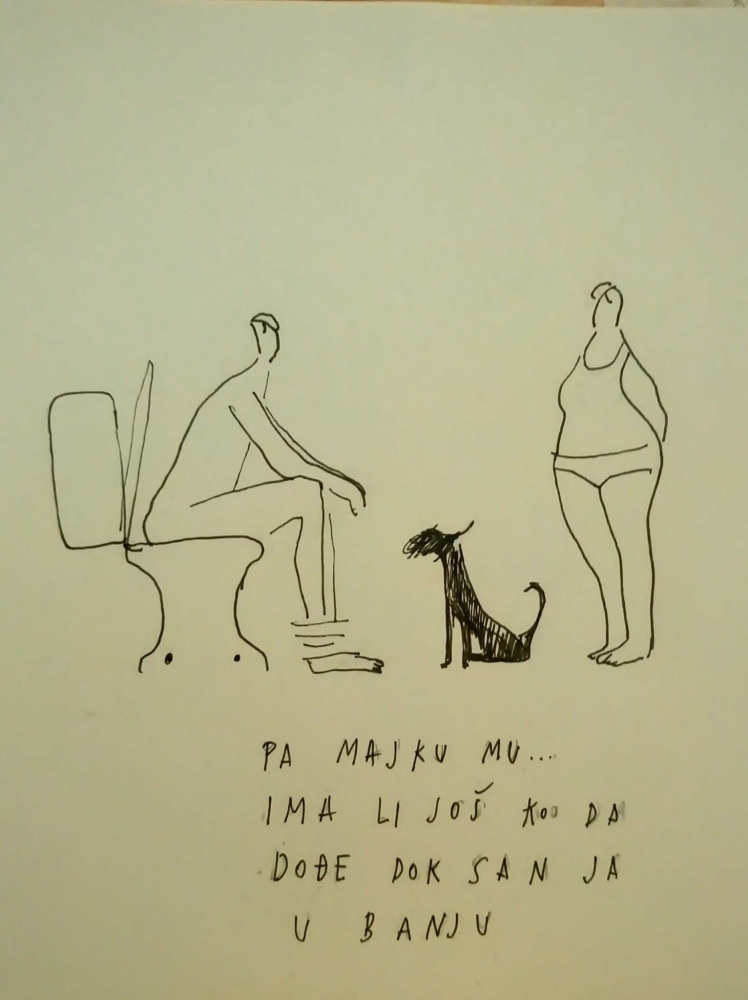 PA MAJKU MU...
IMA LI JOŠ KO DA
DOĐE DOK SAN JA
U BANJU